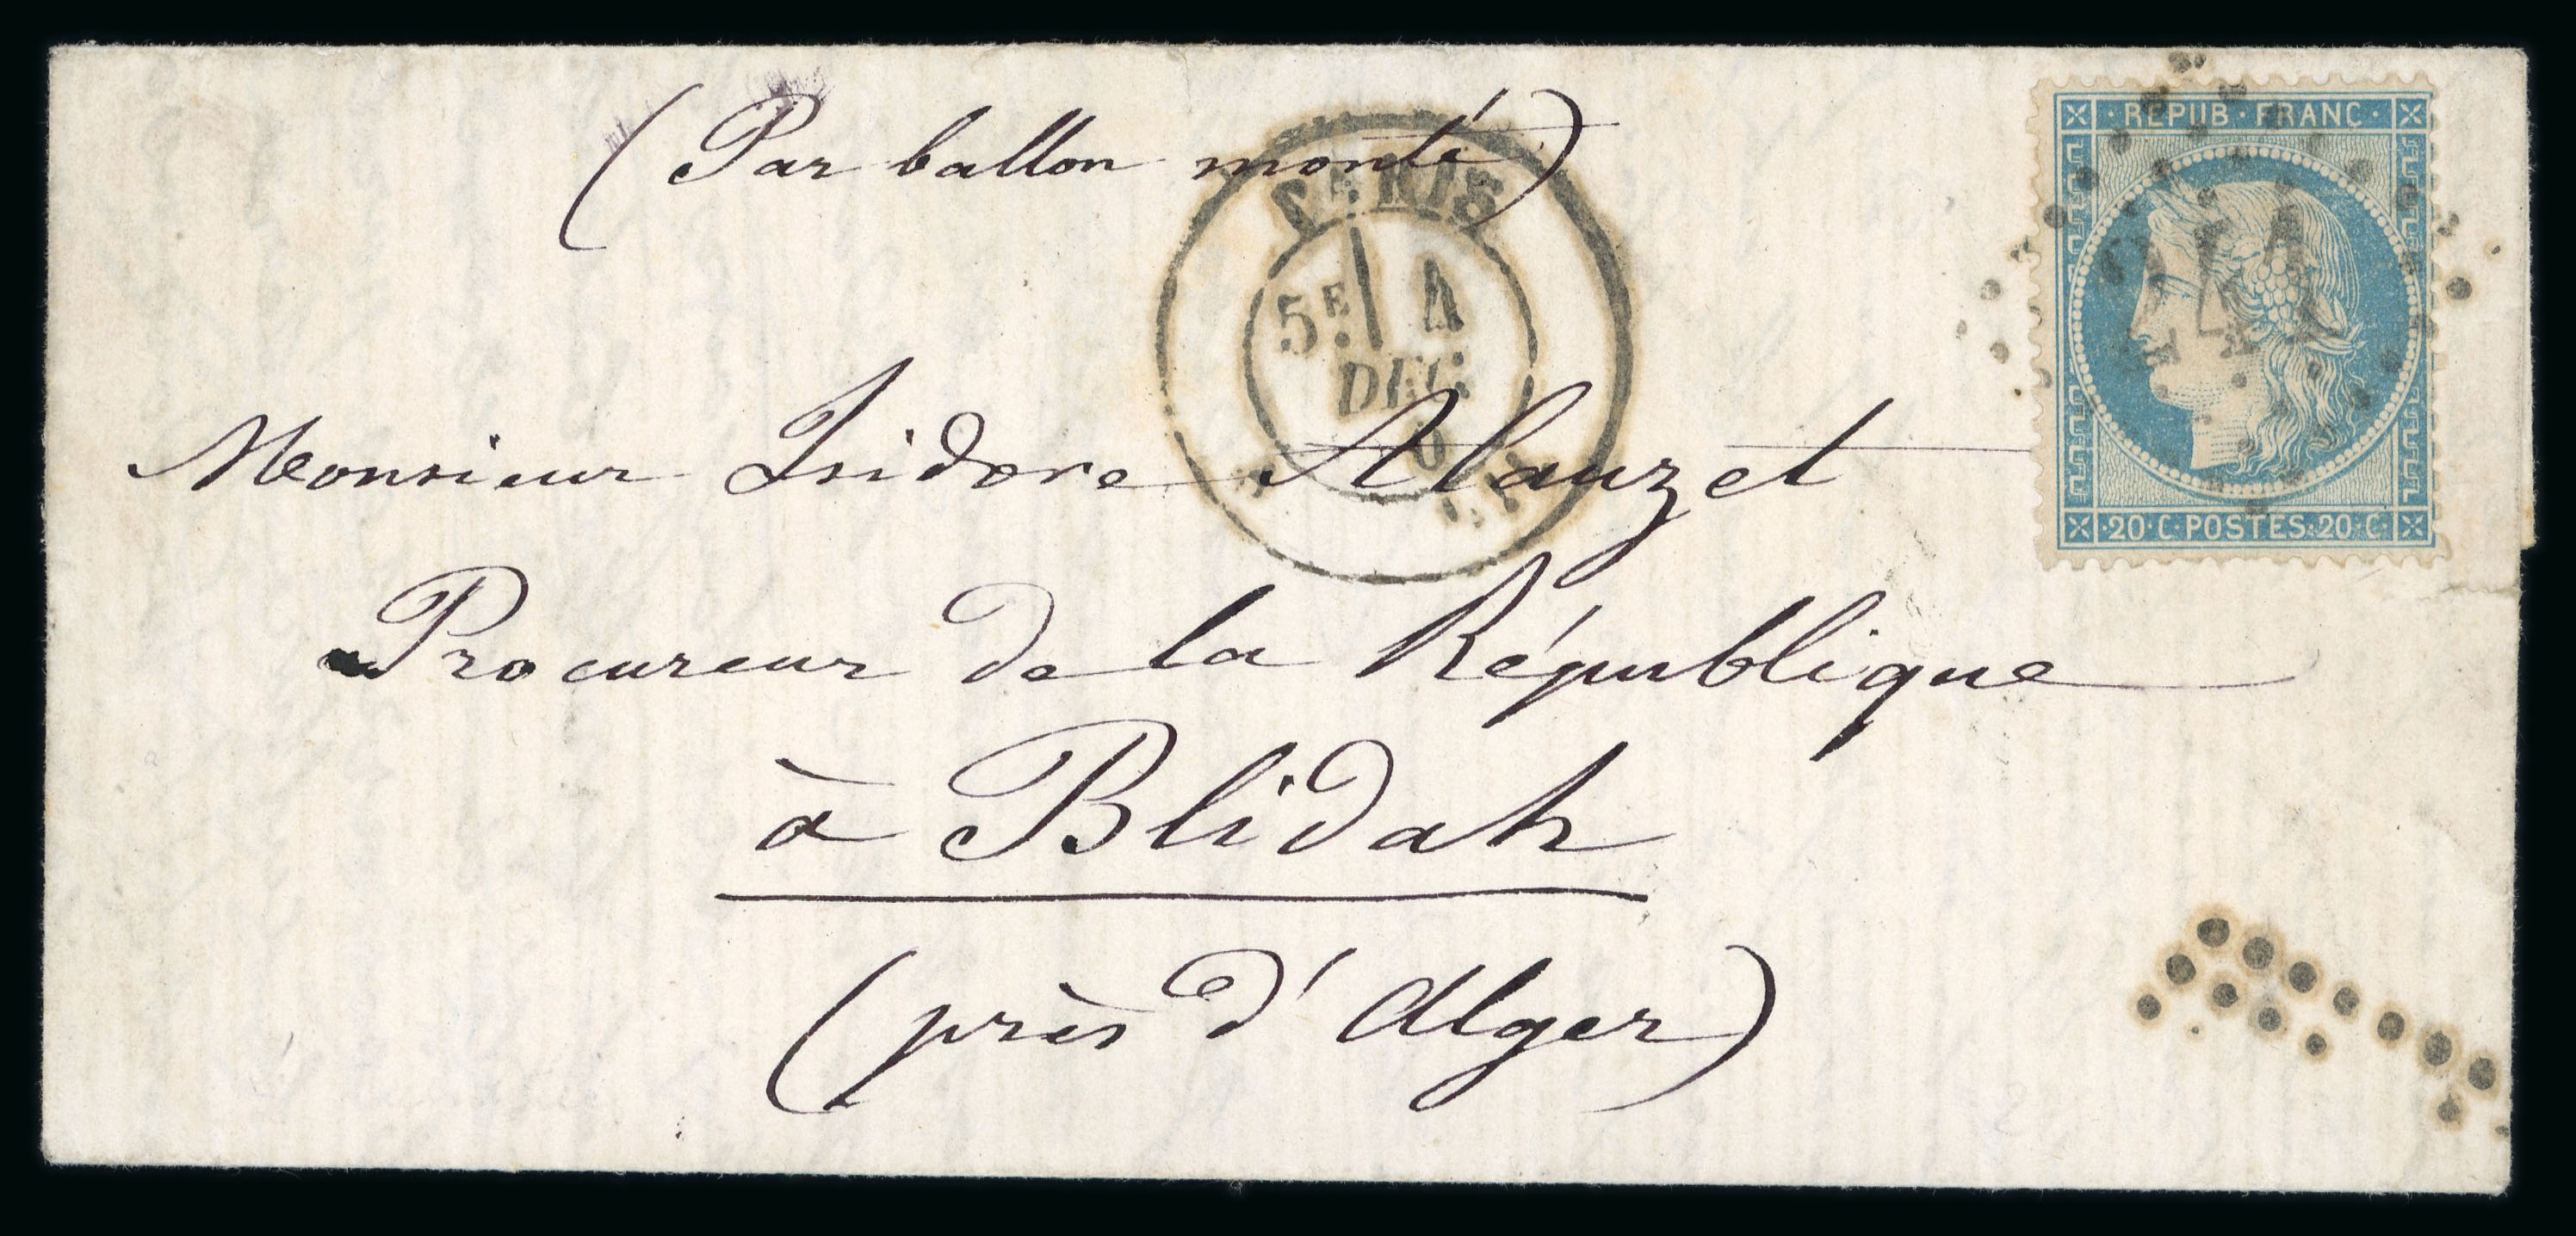 (Par ballon monté)
REPUB · FRANC ·
PARIS
5E 4
DEC
Monsieur Isidore Alauzet
20 · C · POSTES · 20 · C ·
Procureur de la République
à Blidah
(près d'Alger)